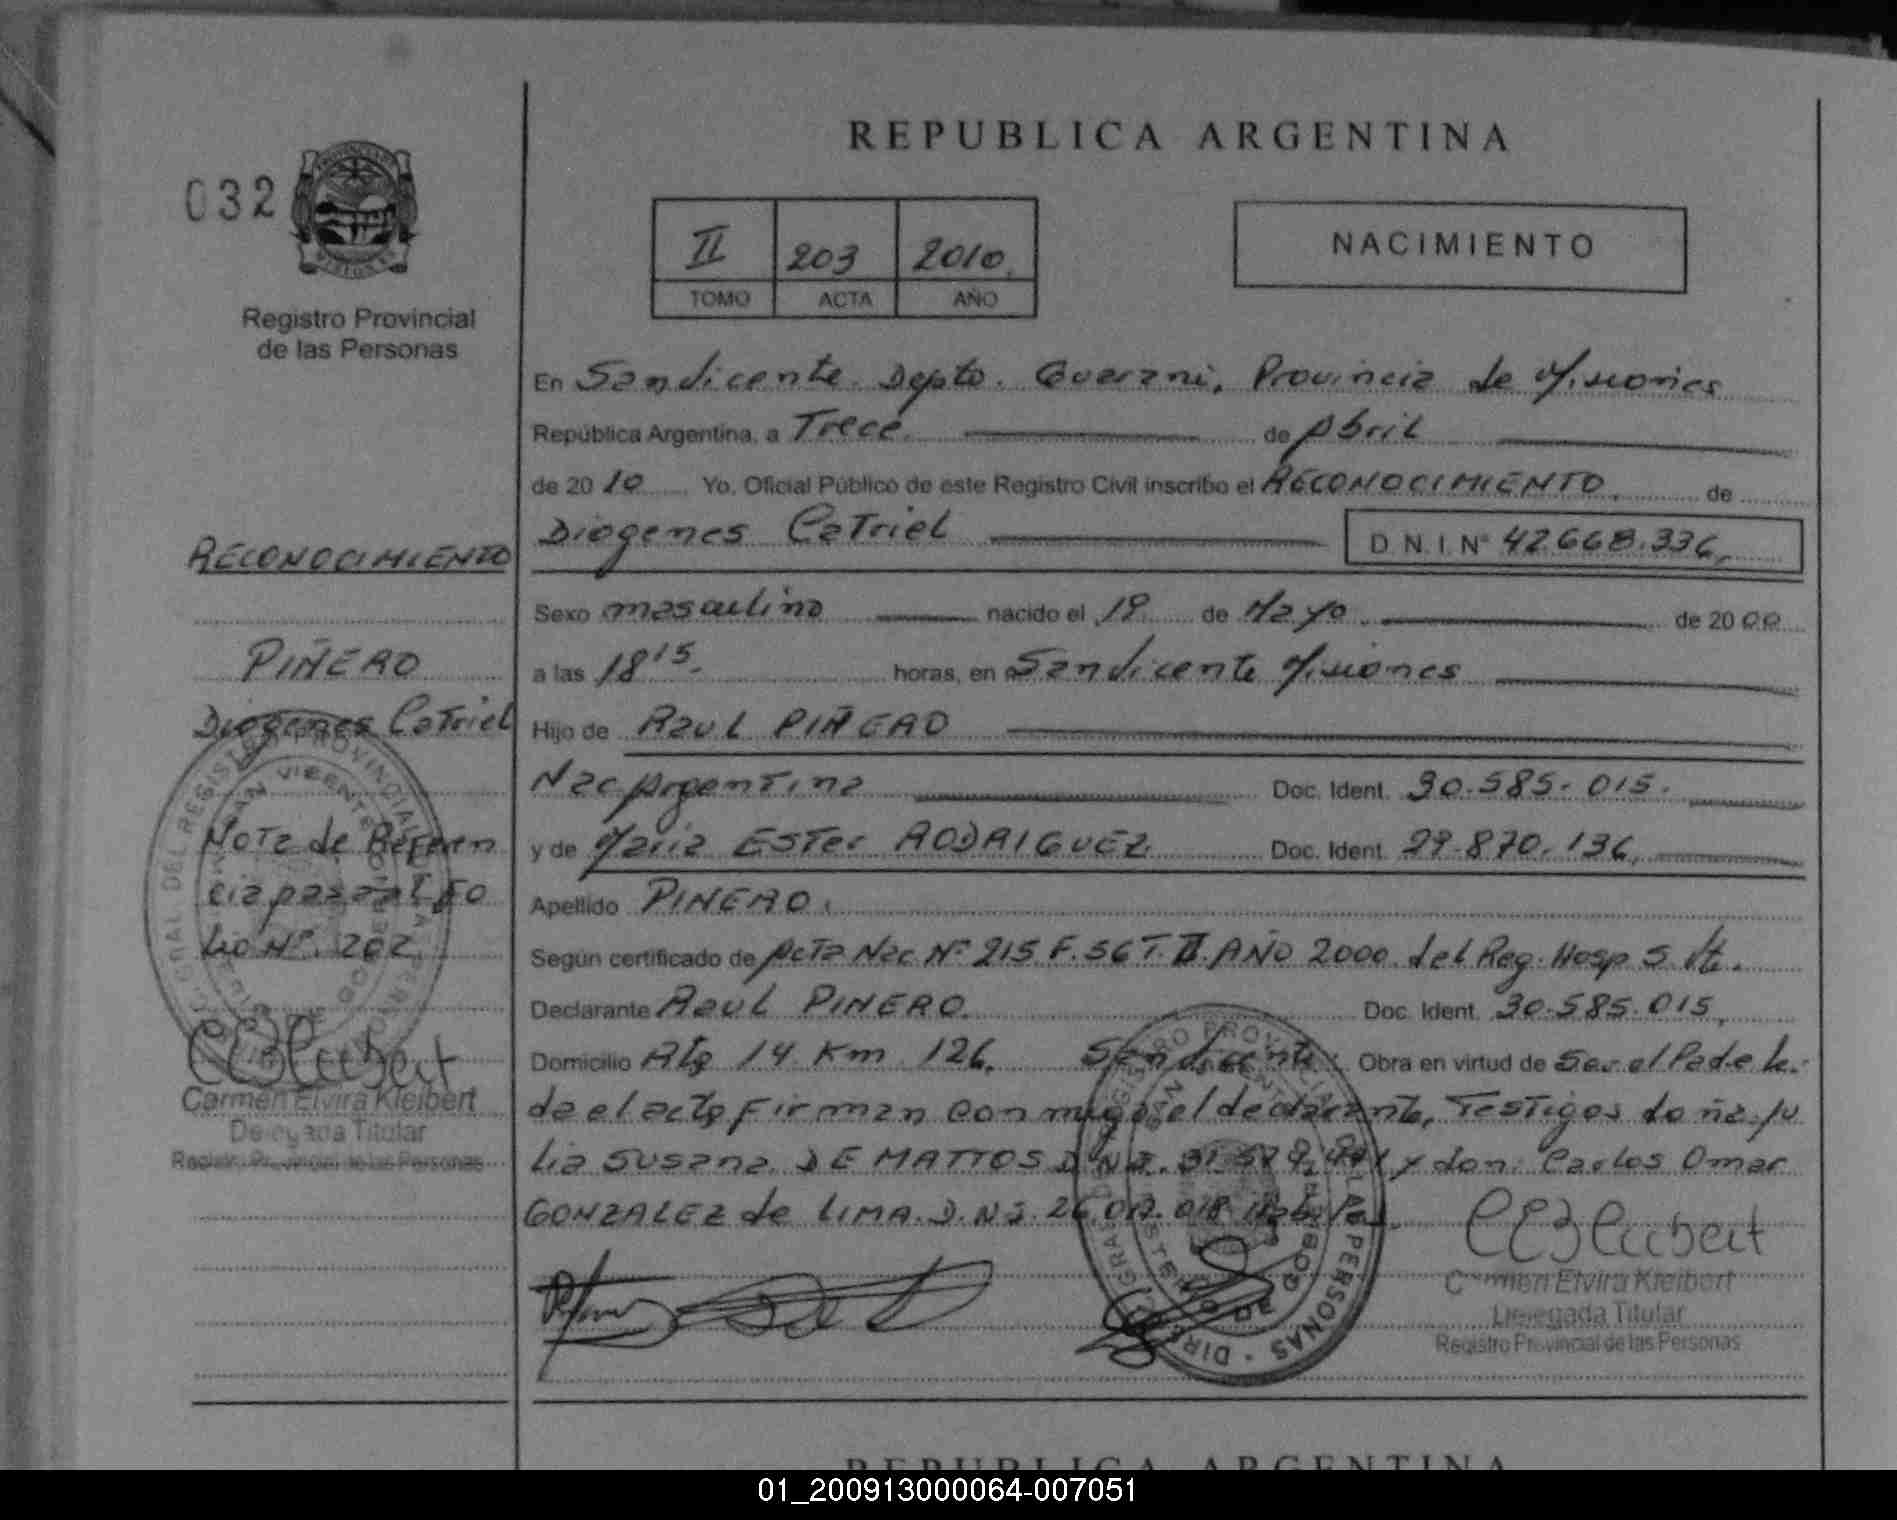 REPUBLICA ARGENTINA
032
Registro Provincial
de las Personas
II 203 2010
TOMO ACTA AÑO
NACIMIENTO
En San Vicente Depto. Guarani, Provincia de Misiones
República Argentina, a Trece de Abril
de 20 10 Yo, Oficial Público de este Registro Civil inscribo el RECONOCIMIENTO de
Diogenes Catriel D.N.I. Nº 42.668.336
Sexo masculino nacido el 19 de Mayo de 20 00
a las 18 15 horas, en San Vicente Misiones
Hijo de Raul PIÑERO
Nac Argentina Doc. Ident. 30.585.015.
y de Maria Ester RODRIGUEZ Doc. Ident. 29.870.136
Apellido PIÑERO.
Según certificado de Acta Nac Nº 215 F. 56 T. II. AÑO 2000 del Reg. Hosp. S. Vte.
Declarante Raul PIÑERO. Doc. Ident. 30.585.015
Domicilio Rta 14 Km 126. San Vicente. Obra en virtud de Ser el Padre Le
da el acta firman con migo el declarante, Testigos doña Ju
lia Susana DE MATTOS D.N.I. y don: Carlos Omar
GONZALEZ de LIMA. D.N.I.
Carmen Elvira Kleibert
Delegada Titular
Registro Provincial de las Personas
RECONOCIMIENTO
PIÑERO
Diogenes Catriel
Nota de Referen
cia pasa al Fo
lio Nº. 202
Carmen Elvira Kleibert
Delegada Titular
Registro Provincial de las Personas
REPUBLICA ARGENTINA
01_200913000064-007051